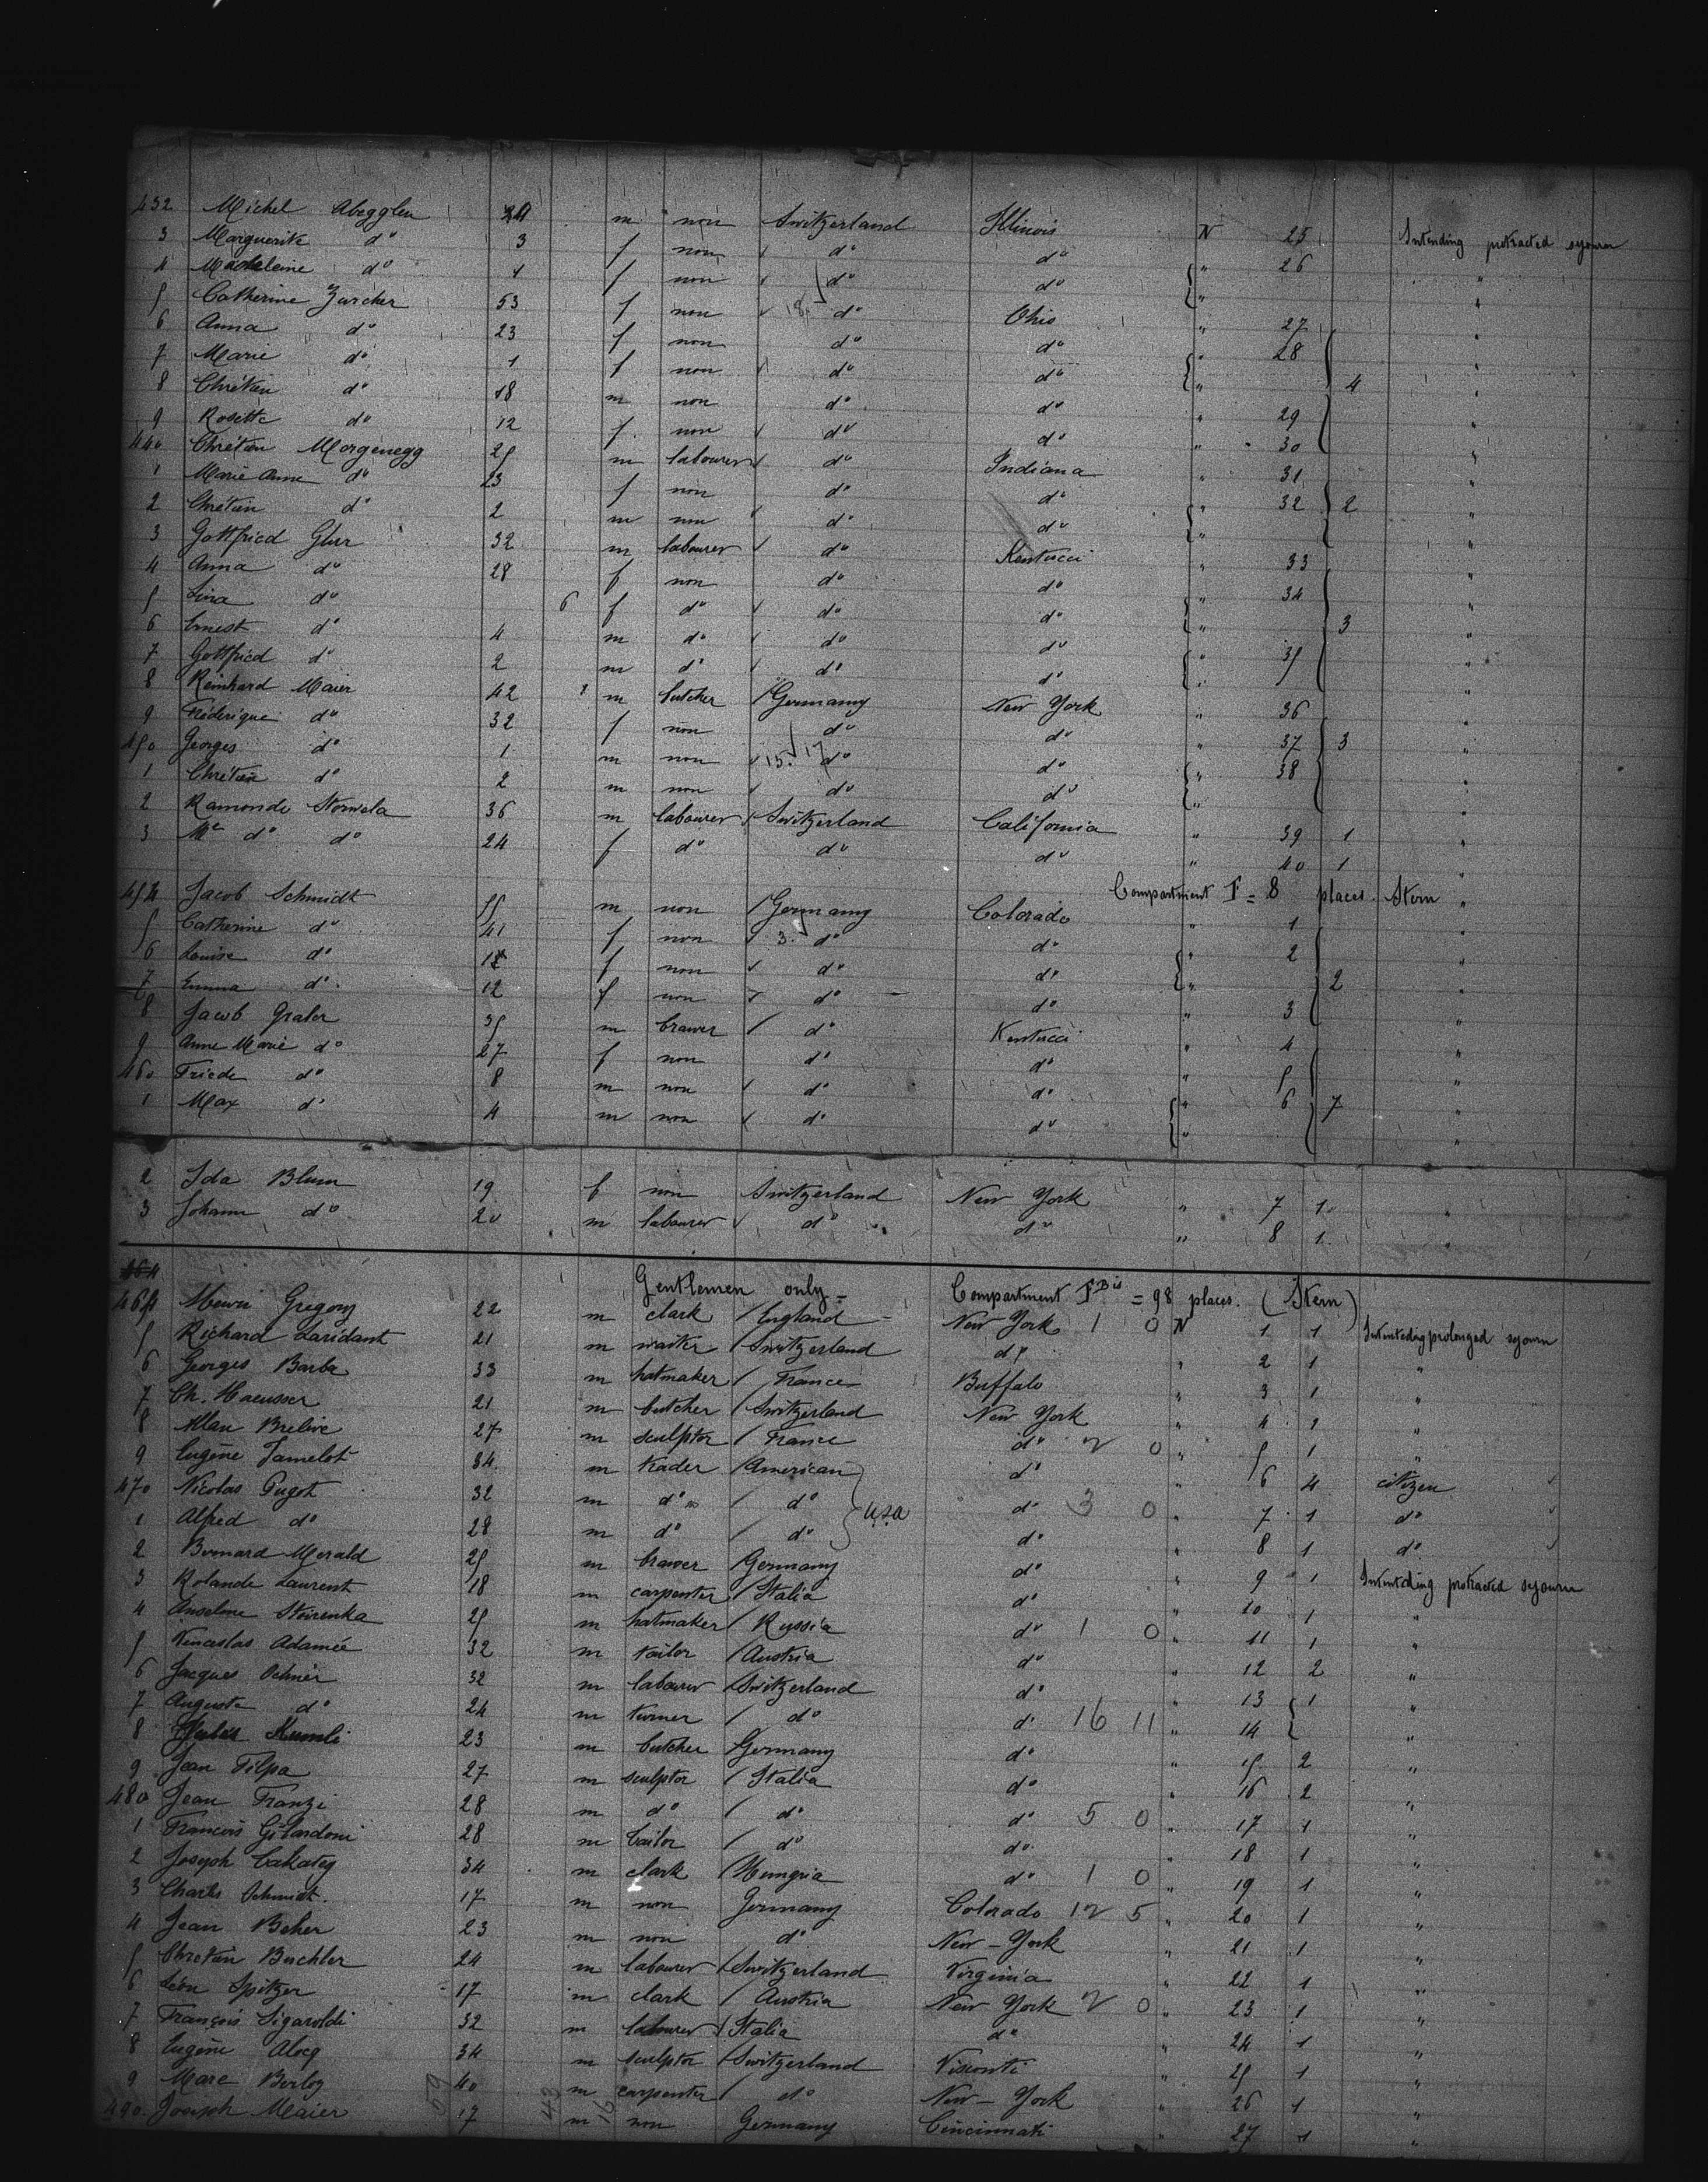 432 Michel Abegglen m non Switzerland Illinois N 25 Intending protracted sejourn
3 Marguerite do 3 f non do do " 26 "
4 Madeleine do f non do do " "
5 Catherine Zurcher 53 f non 18 do Ohio " 27 "
6 Anna do 23 f non do do " 28 "
7 Marie do 1 f non do do " 4 "
8 Chrétien do 18 m non do do " 29 "
9 Rosette do 12 f non do do " 30 "
440 Chrétien Morgenegg 25 m labourer do Indiana " 31 "
1 Marie Anne do 23 f non do do " 32 2 "
2 Chrétien do 2 m non do do " "
3 Gottfried Glur 32 m labourer do Kentucci " 33 "
4 Anna do 28 f non do do " 34 "
5 Lina do 6 f do do do " 3 "
6 Ernest do 4 m do do do " 35 "
7 Gottfried do 2 m do do do " "
8 Reinhard Maier 42 m butcher Germany New York " 36 "
9 Fréderique do 32 f non do do " 37 3 "
450 Georges do 1 m non 15. 17 do do " 38 "
1 Chrétien do 2 m non do do " "
2 Ramonde Stornela 36 m labourer Switzerland California " 39 1 "
3 Me do do 24 f do do do " 40 1 "
Compartment F = 8 places. Stern
454 Jacob Schmidt 55 m non Germany Colorado " 1 "
5 Catherine do 41 f non 3. do do " 2 "
6 Louise do f non do do " 2 "
7 Emma do 12 f non do do " 3 "
8 Jacob Grater 35 m brawer do Kentucci " 4 "
9 Anne Marie do 27 f non do do " 5 "
460 Friede do 8 m non do do " 6 7 "
1 Max do 4 m non do do " "
2 Ida Blum 19 f non Switzerland New York " 7 1 "
3 Johann do 20 m labourer do do " 8 1
464
Gentlemen only = Compartment F Bis = 98 places. (Stern)
464 Gregory 22 m clark England New York 1 0 N 1 1 Intentedig prolonged sejourn
5 Richard Laridant 21 m waiter Switzerland do " 2 1 "
6 Georges Barbe 33 m hatmaker France Buffalo " 3 1 "
7 Ch. Haeusser 21 m butcher Switzerland New York " 4 1 "
8 Allan Brelive 27 m sculptor France do 2 0 " 5 1 "
9 Eugène Jamelot 34 m trader American do " 6 4 citizen
470 Nicolas Pugot 32 m do do USA do 3 0 " 7 1 do
1 Alfred do 28 m do do do " 8 1 do
2 Bernard Merald 25 m brawer Germany do " 9 1 Intentding protracted sejourn
3 Rolande Laurent 18 m carpenter Italia do " 10 1 "
4 Anselme Stoirenka 25 m hatmaker Russia do 1 0 " 11 1 "
5 Vinceslas Adamée 32 m tailor Austria do " 12 2 "
6 Jacques Ochner 32 m labourer Switzerland do " 13 1 "
7 Auguste do 24 m turner do do 16 11 " 14 "
8 Kumli 23 m butcher Germany do " 15 2 "
9 Jean Filpa 27 m sculptor Italia do " 16 2 "
480 Jean Franzi 28 m do do do 5 0 " 17 1 "
1 François Gilardoni 28 m tailor do do " 18 1 "
2 Joseph Cakatey 34 m clark Hungria do 1 0 " 19 1 "
3 Charles Schmidt. 17 m non Germany Colorado 12 5 " 20 1 "
4 Jean Beher 23 m non do New-York " 21 1 "
5 Chretien Buchler 24 m labourer Switzerland Virginia " 22 1 "
6 Léon Spitzer 17 m clark Austria New York 2 0 " 23 1 "
7 François Sigaroldi 32 m labourer Italia do " 24 1 "
8 Eugène Alocq 34 m sculptor Switzerland Visconti " 25 1 "
9 Marc Berloz 40 m carpenter do New-York " 26 1 "
490 Joseph Maier 17 m non Germany Cincinnati " 27 1 "
59 43 16